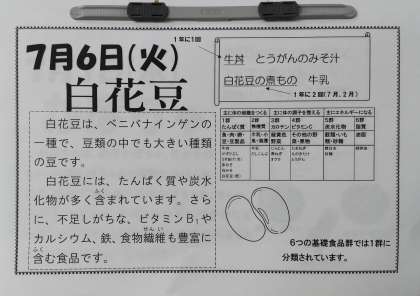 1年に1回
7月6日(火)
白花豆
牛丼 とうがんのみそ汁
白花豆の煮もの 牛乳
1年に2回(7月、2月)
白花豆は、ベニバナインゲンの
一種で、豆類の中でも大きい種類
の豆です。
白花豆には、たんぱく質や炭水
化物が多く含まれています。さら
ふく
に、不足しがちな、ビタミンB₁や
カルシウム、鉄、食物繊維も豊富に
せんい
含む食品です。
ふく
主に体の組織をつくる 主に体の調子を整える 主にエネルギーになる
1群 2群 3群 4群 5群 6群
たんぱく質 無機質 カロテン ビタミンC 炭水化物 脂質
6つの基礎食品群では1群に
分類されています。